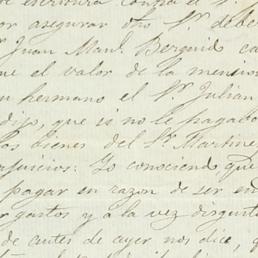 escritura contra el Sr.
or asegurar otro Sr. deber
Juan Manl. Bermudez ca
ue el valor de la mencion
u hermano el Sr. Julian
dijo, que si no le pagaba
los bienes del Sr. Martine
rjuicios: Yo conociendo, que
pagar en razon de ser en
r gastos y á la vez disgust
de antes de ayer nos dice, q